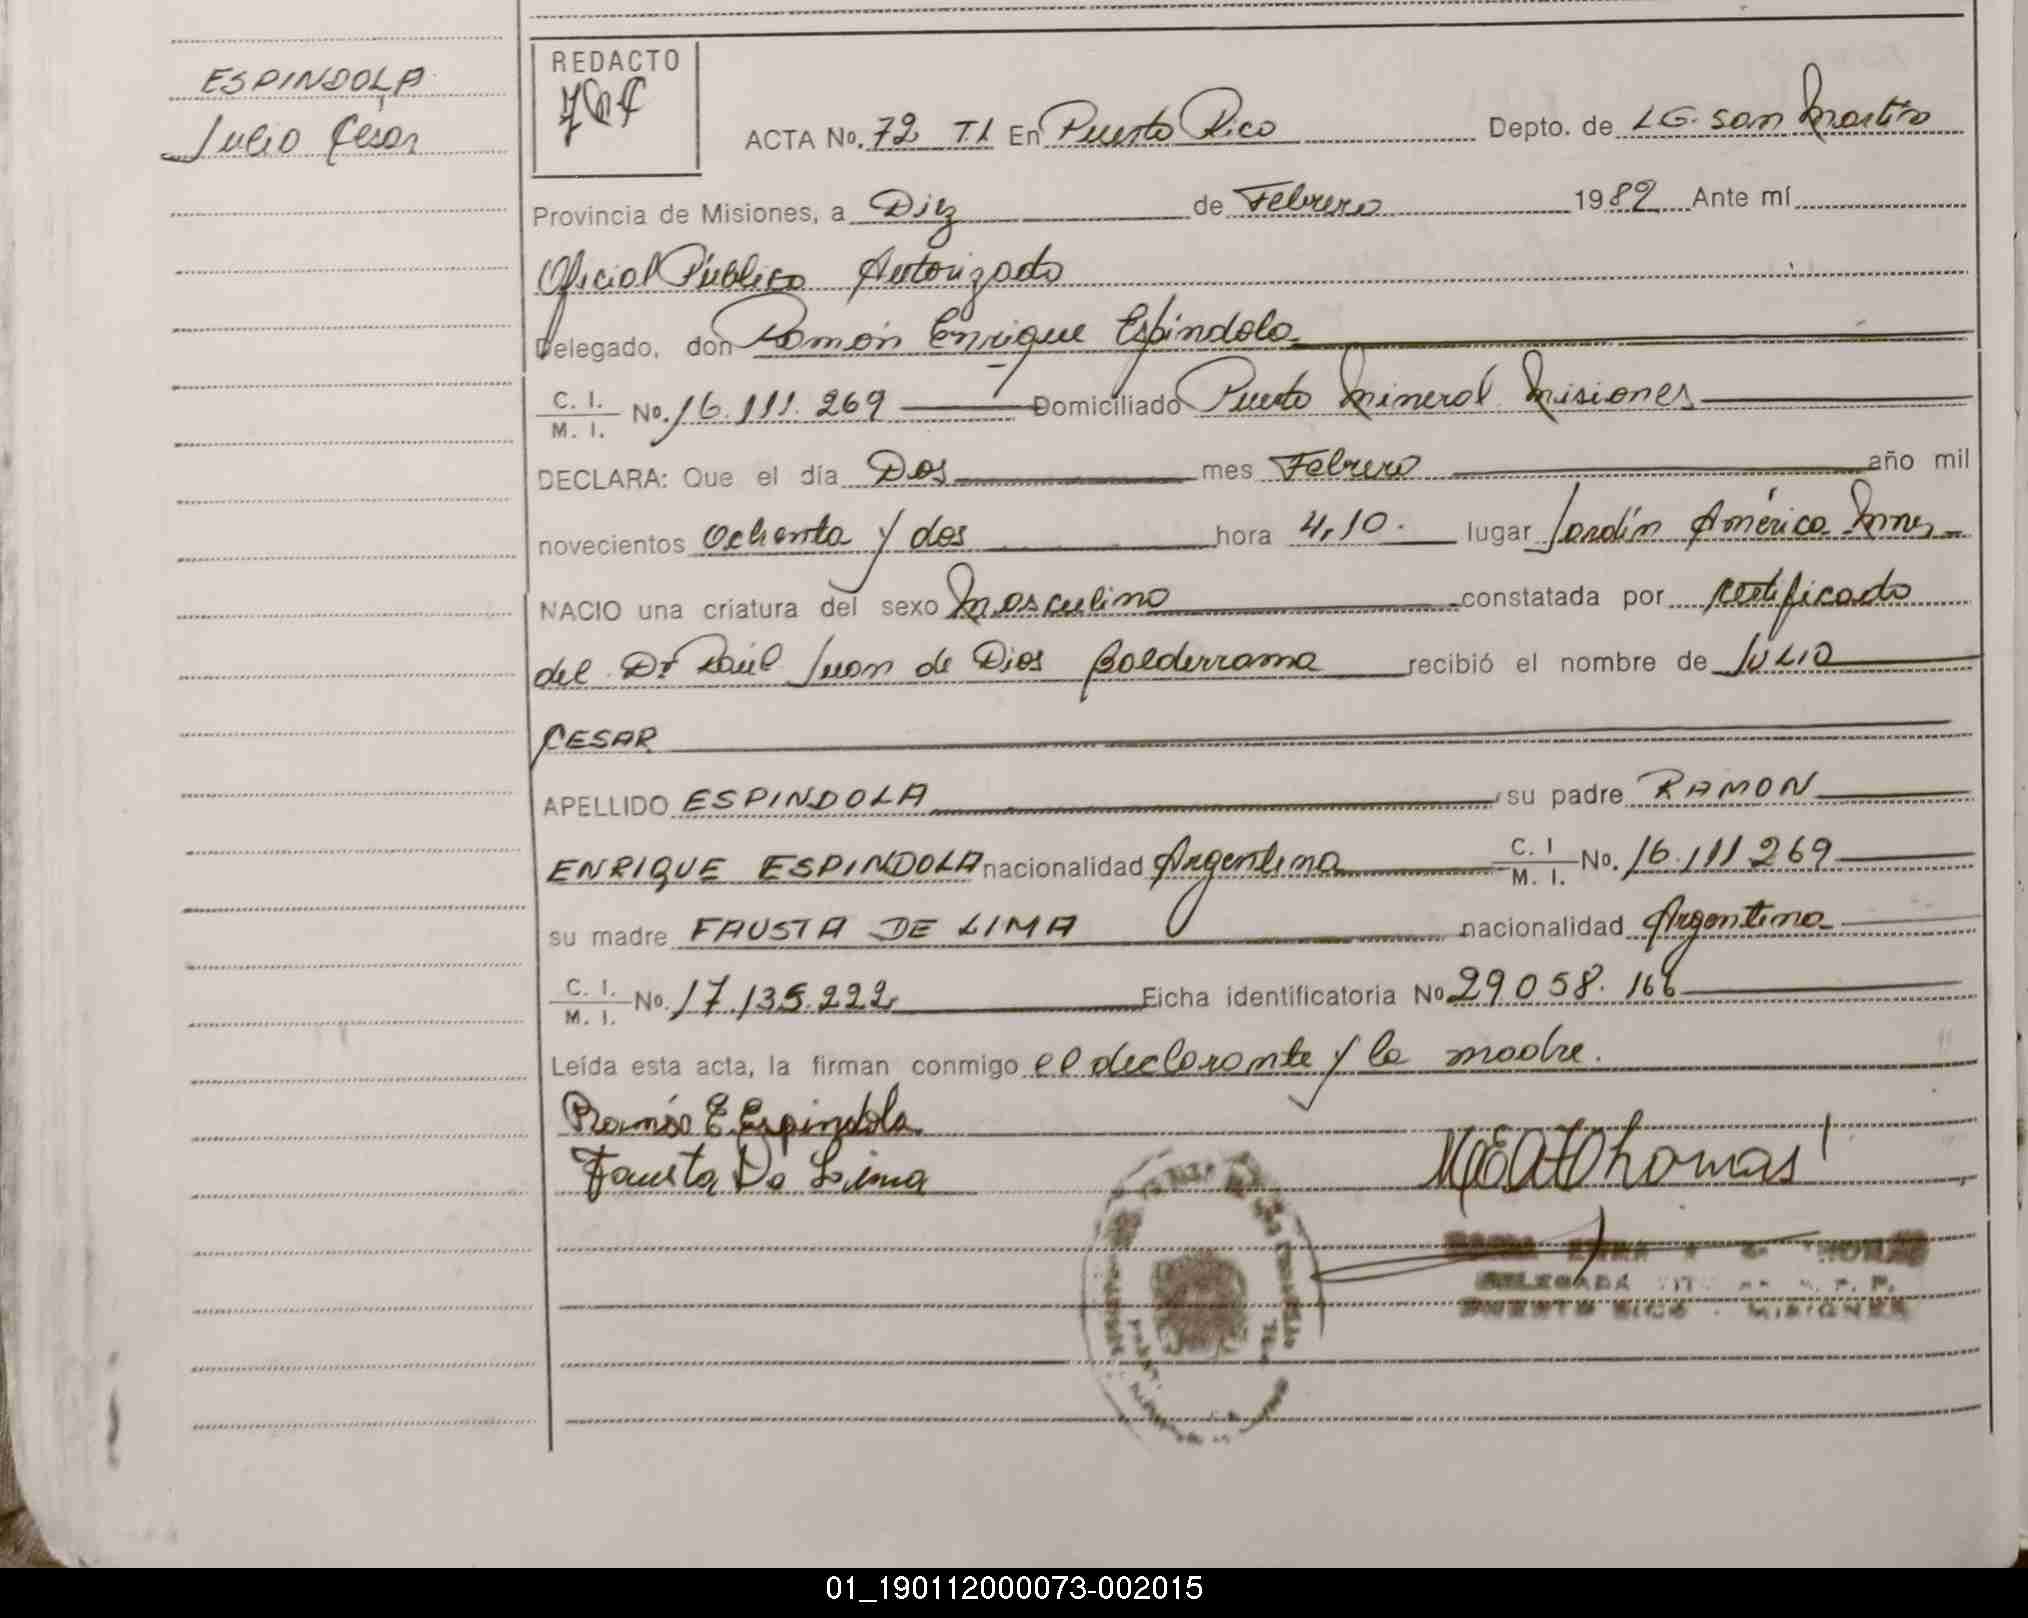 ESPINDOLA
Julio César
REDACTO
ACTA No. 72 T.1 En Puerto Rico Depto. de LG. San Martín
Provincia de Misiones, a Diez de Febrero 1982 Ante mí
Oficial Público Autorizado
Delegado, don Ramón Enrique Espíndola
C. I. / M. I. No. 16.111.269 Domiciliado Puerto Mineral Misiones
DECLARA: Que el día Dos mes Febrero año mil
novecientos Ochenta y dos hora 4,10. lugar Jardín América Mnes
NACIO una criatura del sexo Masculino constatada por certificado
del Dr Raúl Juan de Dios Balderrama recibió el nombre de JULIO
CESAR
APELLIDO ESPINDOLA su padre RAMON
ENRIQUE ESPINDOLA nacionalidad Argentina C. I / M. I. No. 16.111269
su madre FAUSTA DE LIMA nacionalidad Argentina
C. I. / M. I. No. 17.135.222 Ficha identificatoria No 29058.166
Leída esta acta, la firman conmigo el declarante y la madre.
Ramón E Espindola
Fausta De Lima
Thomas
THOMAS
DELEGADA
PUERTO RICO - MISIONES
01_190112000073-002015